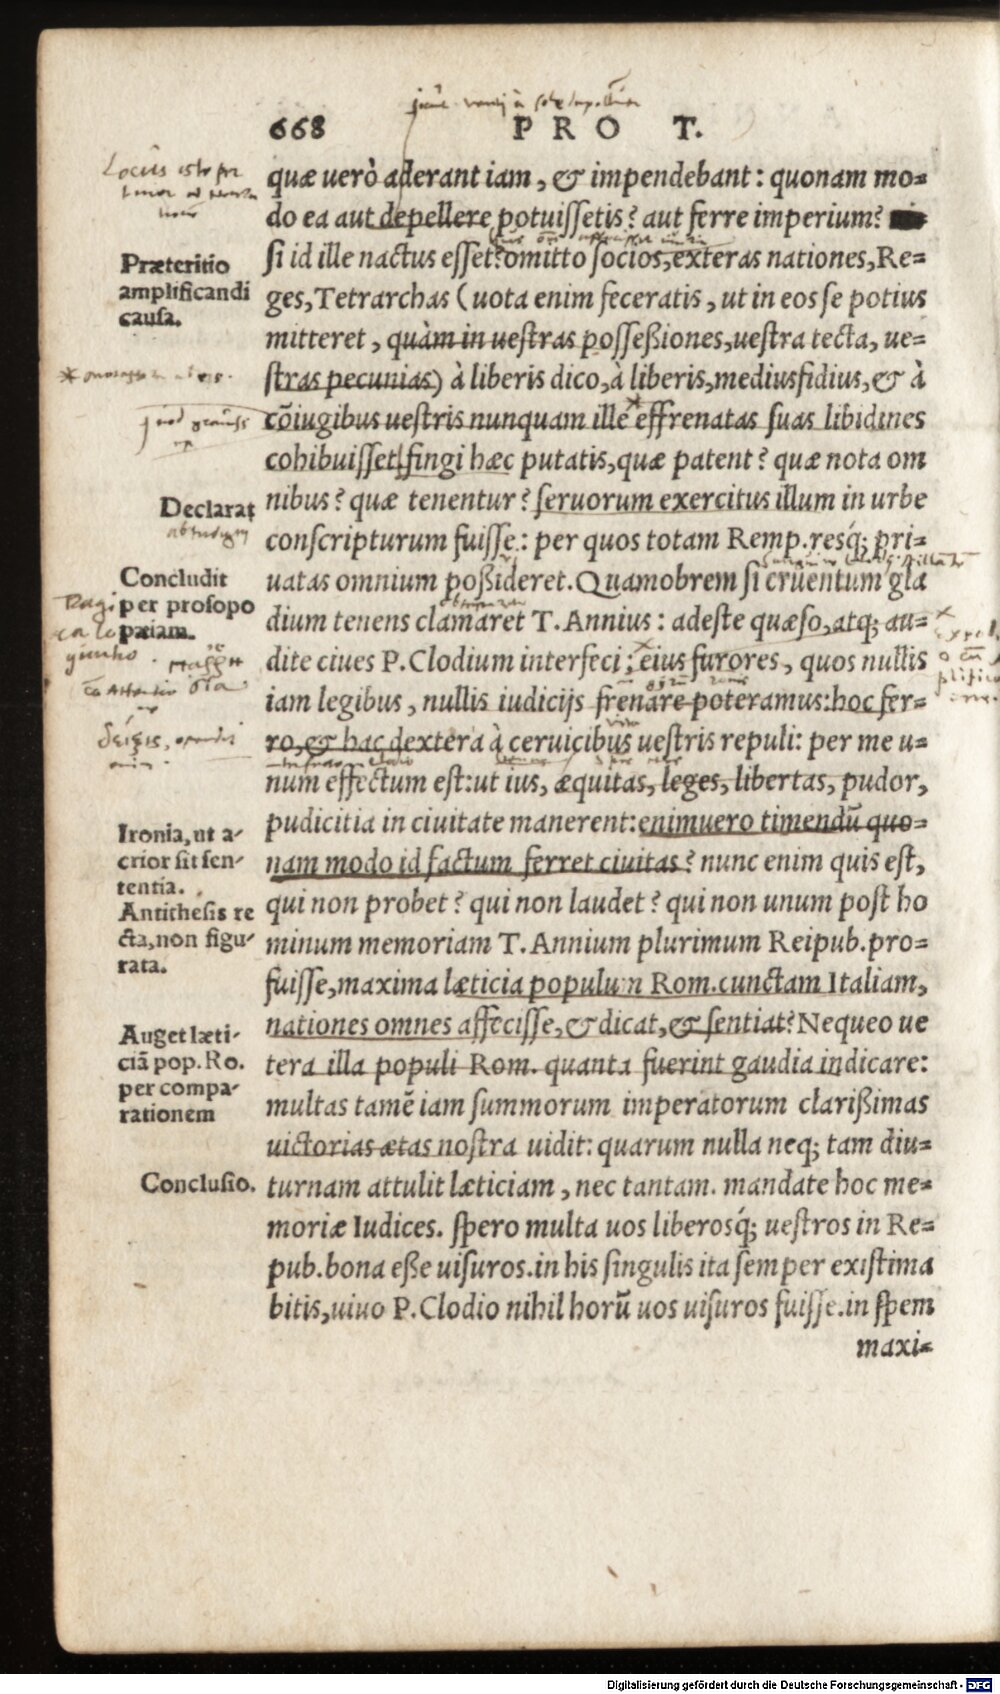 668 PRO T.
quæ uerò aderant iam, & impendebant: quonam mo=
do ea aut depellere potuissetis? aut ferre imperium?
si id ille nactus esset? omitto socios, exteras nationes, Re=
ges, Tetrarchas (uota enim feceratis, ut in eos se potius
mitteret, quàm in uestras possessiones, uestra tecta, ue=
stras pecunias) à liberis dico, à liberis, mediusfidius, & à
cõiugibus uestris nunquam ille effrenatas suas libidines
cohibuisset. fingi hæc putatis, quæ patent? quæ nota om
nibus? quæ tenentur? seruorum exercitus illum in urbe
conscripturum fuisse: per quos totam Remp. resq́; pri=
uatas omnium possideret. Quamobrem si cruentum gla
dium tenens clamaret T. Annius: adeste quæso, atq; au=
dite ciues P. Clodium interfeci: eius furores, quos nullis
iam legibus, nullis iudicijs frenare poteramus: hoc fer=
ro, & hac dextera à ceruicibus uestris repuli: per me u=
num effectum est: ut ius, æquitas, leges, libertas, pudor,
pudicitia in ciuitate manerent: enimuero timendũ quo=
nam modo id factum ferret ciuitas? nunc enim quis est,
qui non probet? qui non laudet? qui non unum post ho
minum memoriam T. Annium plurimum Reipub. pro=
fuisse, maxima læticia populum Rom. cunctam Italiam,
nationes omnes affecisse, & dicat, & sentiat? Nequeo ue
tera illa populi Rom. quanta fuerint gaudia indicare:
multas tamẽ iam summorum imperatorum clarissimas
uictorias ætas nostra uidit: quarum nulla neq; tam diu=
turnam attulit læticiam, nec tantam. mandate hoc me=
moriæ Iudices. spero multa uos liberosq́; uestros in Re=
pub. bona esse uisuros. in his singulis ita semper existima
bitis, uiuo P. Clodio nihil horũ uos uisuros fuisse. in spem
maxi=
Præteritio
amplificandi
causa.
Declarat
Concludit
per prosopo
pæiam.
Ironia, ut a-
crior sit sen-
tentia.
Antithesis re
cta, non figu-
rata.
Auget læti-
ciã pop. Ro.
per compa-
rationem
Conclusio.
Digitalisierung gefördert durch die Deutsche Forschungsgemeinschaft - DFG